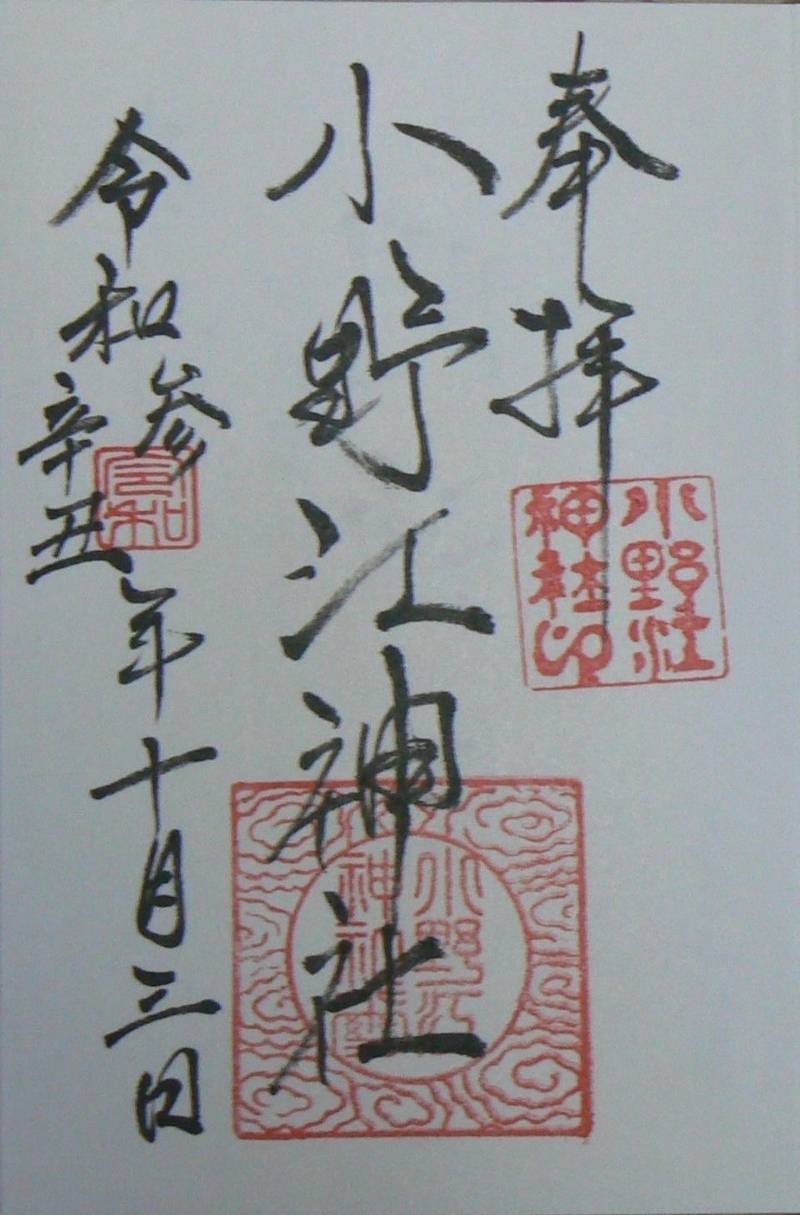 奉拝
小野江
神社印
小野江神社
小野江
神社
令和参
辛丑
年十月三日
令和